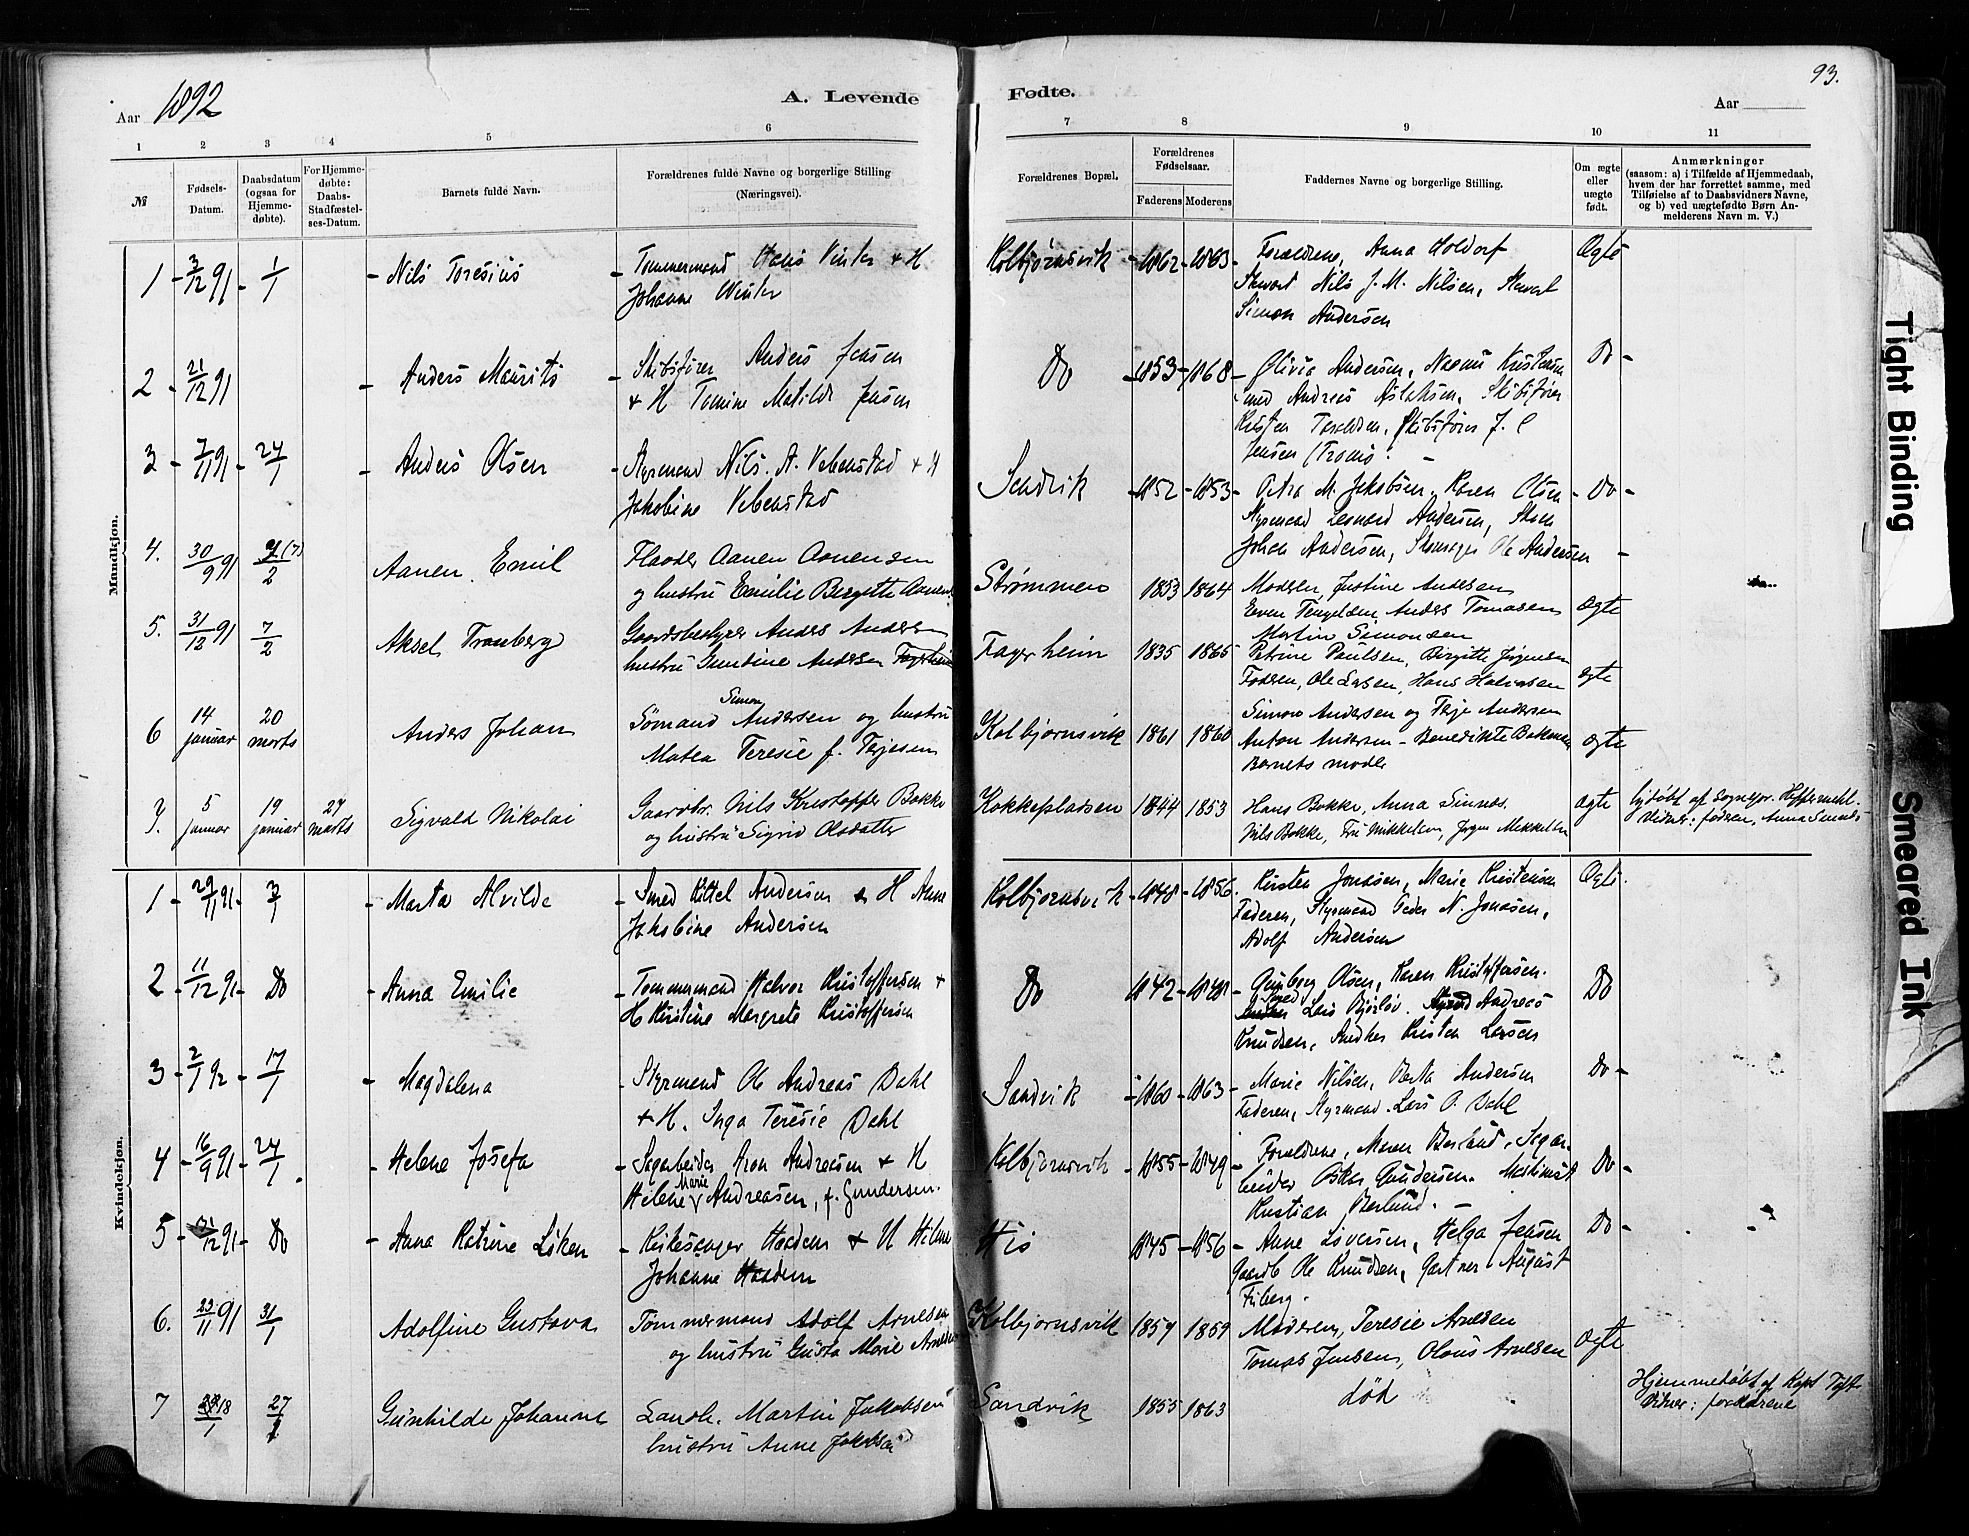 93.
Aar 1892
A. Levende Fødte.
Aar
1 2 3 4 5 6 7 8 9 10 11
№
Fødsels-Datum.
Daabsdatum (ogsaa for Hjemmedøbte).
For Hjemmedøbte: Daabs-Stadfæstelses-Datum.
Barnets fulde Navn.
Forældrenes fulde Navne og borgerlige Stilling
(Næringsvei).
Forældrenes Bopæl.
Forældrenes Fødselsaar.
Faderens Moderens
Faddernes Navne og borgerlige Stilling.
Om ægte eller uægte født.
Anmærkninger
(saasom: a) i Tilfælde af Hjemmedaab, hvem der har forrettet samme, med Tilføielse af to Daabsvidners Navne, og b) ved uægtefødte Børn Anmelderens Navn m. V.)
Mandkjøn.
1 - 3/12 91 - 1/1 - Nils Toresius - Tømmermand Hans Vinter + H
Johanne Winter
Kolbjørnsvik - 1862 - 1863 - Forældrene, Anna Holdorf
Nils J. M. Nilsen,
Simon Andersen
Ægte
2 - 21/12 91 - Anders Maurits - Skibsfører Anders Jensen
+ H Tomine Matilde Jensen
Do - 1853 - 1868 - Olivia Andersen, Naomi Kristensen
Smed Andreas Aslaksen, Skibsfører
Skibsfører J. C
Jensen (Tromø).
Do -
3 - 7/11 91 - 24/1 - Anders Olsen - Styrmand Nils. A. Vebenstad + H
Jakobine Vebenstad
Sandvik - 1852 - 1853 - Petra M. Jakobsen, Karen Olsen
Styrmand Leonard Andersen,
Johan Andersen, Ole Andersen
- Do -
4. 30/9 91 2 (7) Aanen Emil
Aanen Aanensen
og hustru Emilie Birgitte Aanensen
Strømmen 1853 1864 Moderen, Justine Andersen
Even Tengelsen, Anders Tomasen
Martin Simonsen
Ægte
5. 31/12 91 7/2 Aksel Tranberg
Gaardsbestyrer Anders Andersen
hustru Gundine Andersen
Fagerheim 1835 1865 Petrine Paulsen, Birgitte Jørgensen
Faderen, Ole Larsen, Hans Halvorsen
ægte
6 14 januar 20 marts Anders Johan
Sømand Simon Andersen og hustru
Matea Teresie f. Terjesen
Kolbjørnsvik 1861 1860 Simon Andersen og Terje Andersen
Anton Andersen - Benedikte Bakman
Barnets moder
ægte
7. 5 januar 19 januar 27 marts Sigvald Nikolai
Gaardbr. Nils Kristoffer Bakke
og hustru Sigrid Olsdatter
Kokkeplassen 1844 1853 Hans Bakke, Anna Sinnes.
Nils Bakke, Fru Mikkelsen, Jørgen Mikkelsen
ægte
Hjdøbt af Sognepr. Hoffmehl.
Vidner: faderen, Anna Sinnes
Kvindekjøn.
1 - 29/11 91 - 3/1 - Marta Alvilde - Smed Kittel Andersen & H Anne
Jakobine Andersen
Kolbjørnsvik - 1848 - 1856. Kirsten Jonassen, Marie Kristensen
Faderen, Styrmand Peder N. Jonassen,
Adolf Andersen
Ægte.
2 - 11/12 91 - Do - Anna Emilie - Tømmermand Halvor Kristoffersen +
H Kirstine Margrete Kristoffersen
Do 1842 - Gunborg Olsen, Karen Kristoffersen.
Smed Lars Andreas
Knudsen, Kristen Larsen
Do
3 - 2/1 92 - 17/1 - Magdalena - Styrmand Ole Andreas Dahl
+ H. Inga Teresie Dahl
Sandvik - 1860 - 1863 - Marie Nilsen, Berta Andersen
Faderen, Styrmand Lars O. Dahl
Do -
4 - 16/9 91 - 24/1 - Helene Josefa - Sagarbeider Aron Andreasen + H
Helene Marie Andreasen, f. Gundersen.
Kolbjørnsvik - 1855 - 1849 - Forældrene, Maren Berlund, Sagarbeider
Oskar Gundersen. Maskinist
Kristian Berlund. -
Do -
5 - 12 91 - Do - Anna Katrine Löken - Kirkesanger Haadem + H Helene
Johanne Haadem
His 1845 - 1856 - Anne Siversen, Helga Jensen
Gaardb Ole Knudsen, Gartner August
Friberg.
Do -
6. 23/11 91 31/1 Adolfine Gustava
Tømmermand Adolf Arnesen
og hustru Gusta Marie Arnesen
Kolbjørnsvik 1857 1859 Moderen, Teresie Arnesen
Tomas Jensen, Olaus Arnesen
Ægte
7 18/1 27 Gunhilde Johanne
Landh. Martin Jakobsen
hustru Anne Jakobsen
Sandvik 1855 1863 død
Hjemmedøbt af Kapt Toft
Vidner: forældrene
Tight Binding
Smeared Ink